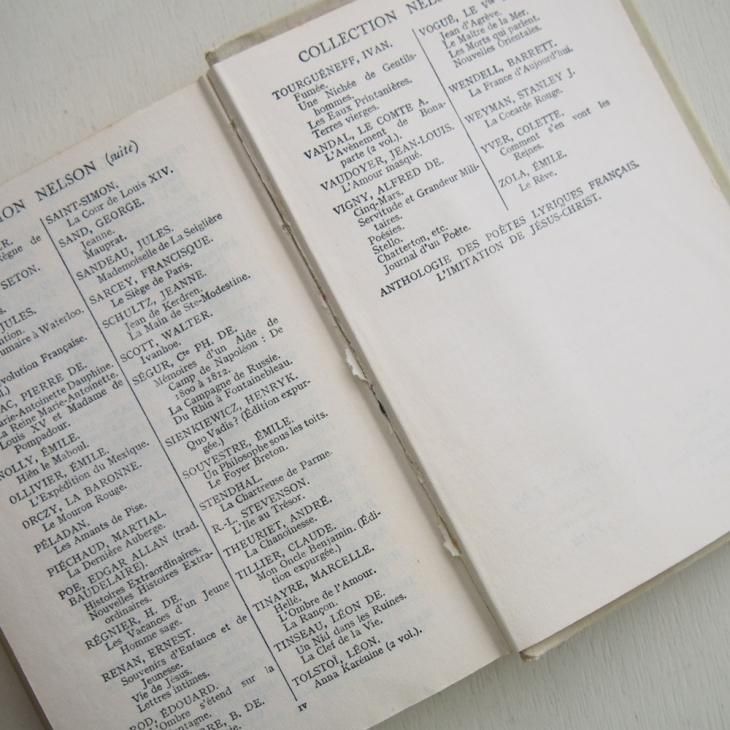 ION NELSON (suite)
Règne de
SETON.
JULES.
umaire à Waterloo.
évolution Française.
AC, PIERRE DE.
arie-Antoinette Dauphine.
La Reine Marie-Antoinette.
Louis XV et Madame de
Pompadour.
NOLLY, ÉMILE.
Hiên le Maboul.
OLLIVIER, ÉMILE.
L'Expédition du Mexique.
ORCZY, LA BARONNE.
Le Mouron Rouge.
PÉLADAN.
Les Amants de Pise.
PIÉCHAUD, MARTIAL.
La Dernière Auberge.
POE, EDGAR ALLAN (trad.
BAUDELAIRE).
Histoires Extraordinaires.
Nouvelles Histoires Extra-
ordinaires.
RÉGNIER, H. DE.
Les Vacances d'un Jeune
Homme sage.
RENAN, ERNEST.
Souvenirs d'Enfance et de
Jeunesse.
Vie de Jésus.
Lettres intimes.
ROD, ÉDOUARD.
L'Ombre s'étend sur la
ontagne.
RE, B. DE.
SAINT-SIMON.
La Cour de Louis XIV.
SAND, GEORGE.
Jeanne.
Mauprat.
SANDEAU, JULES.
Mademoiselle de La Seiglière
SARCEY, FRANCISQUE.
Le Siège de Paris.
SCHULTZ, JEANNE.
Jean de Kerdren.
La Main de Ste-Modestine.
SCOTT, WALTER.
Ivanhoe.
SÉGUR, Cte PH. DE.
Mémoires d'un Aide de
Camp de Napoléon : De
1800 à 1812.
La Campagne de Russie.
Du Rhin à Fontainebleau.
SIENKIEWICZ, HENRYK.
Quo Vadis ? (Édition expur-
gée.)
SOUVESTRE, ÉMILE.
Un Philosophe sous les toits.
Le Foyer Breton.
STENDHAL.
La Chartreuse de Parme.
R.-L. STEVENSON.
L'Ile au Trésor.
THEURIET, ANDRÉ.
La Chanoinesse.
TILLIER, CLAUDE.
Mon Oncle Benjamin. (Édi-
tion expurgée.)
TINAYRE, MARCELLE.
Hellé.
L'Ombre de l'Amour.
La Rançon.
TINSEAU, LÉON DE.
Un Nid dans les Ruines.
La Clef de la Vie.
TOLSTOÏ, LÉON.
Anna Karénine (2 vol.).
IV
COLLECTION NELS
TOURGUÉNEFF, IVAN.
Fumée.
Une Nichée de Gentils-
hommes.
Les Eaux Printanières.
Terres vierges.
VANDAL, LE COMTE A.
L'Avènement de Bona-
parte (2 vol.).
VAUDOYER, JEAN-LOUIS.
L'Amour masqué.
VIGNY, ALFRED DE.
Cinq-Mars.
Servitude et Grandeur Mili-
taires.
Poésies.
Stello.
Chatterton, etc.
Journal d'un Poète.
VOGÜÉ, LE Vte
Jean d'Agrève.
Le Maître de la Mer.
Les Morts qui parlent.
Nouvelles Orientales.
WENDELL, BARRETT.
La France d'Aujourd'hui.
WEYMAN, STANLEY J.
La Cocarde Rouge.
YVER, COLETTE.
Comment s'en vont les
Reines.
ZOLA, ÉMILE.
Le Rêve.
ANTHOLOGIE DES POÈTES LYRIQUES FRANÇAIS.
L'IMITATION DE JÉSUS-CHRIST.